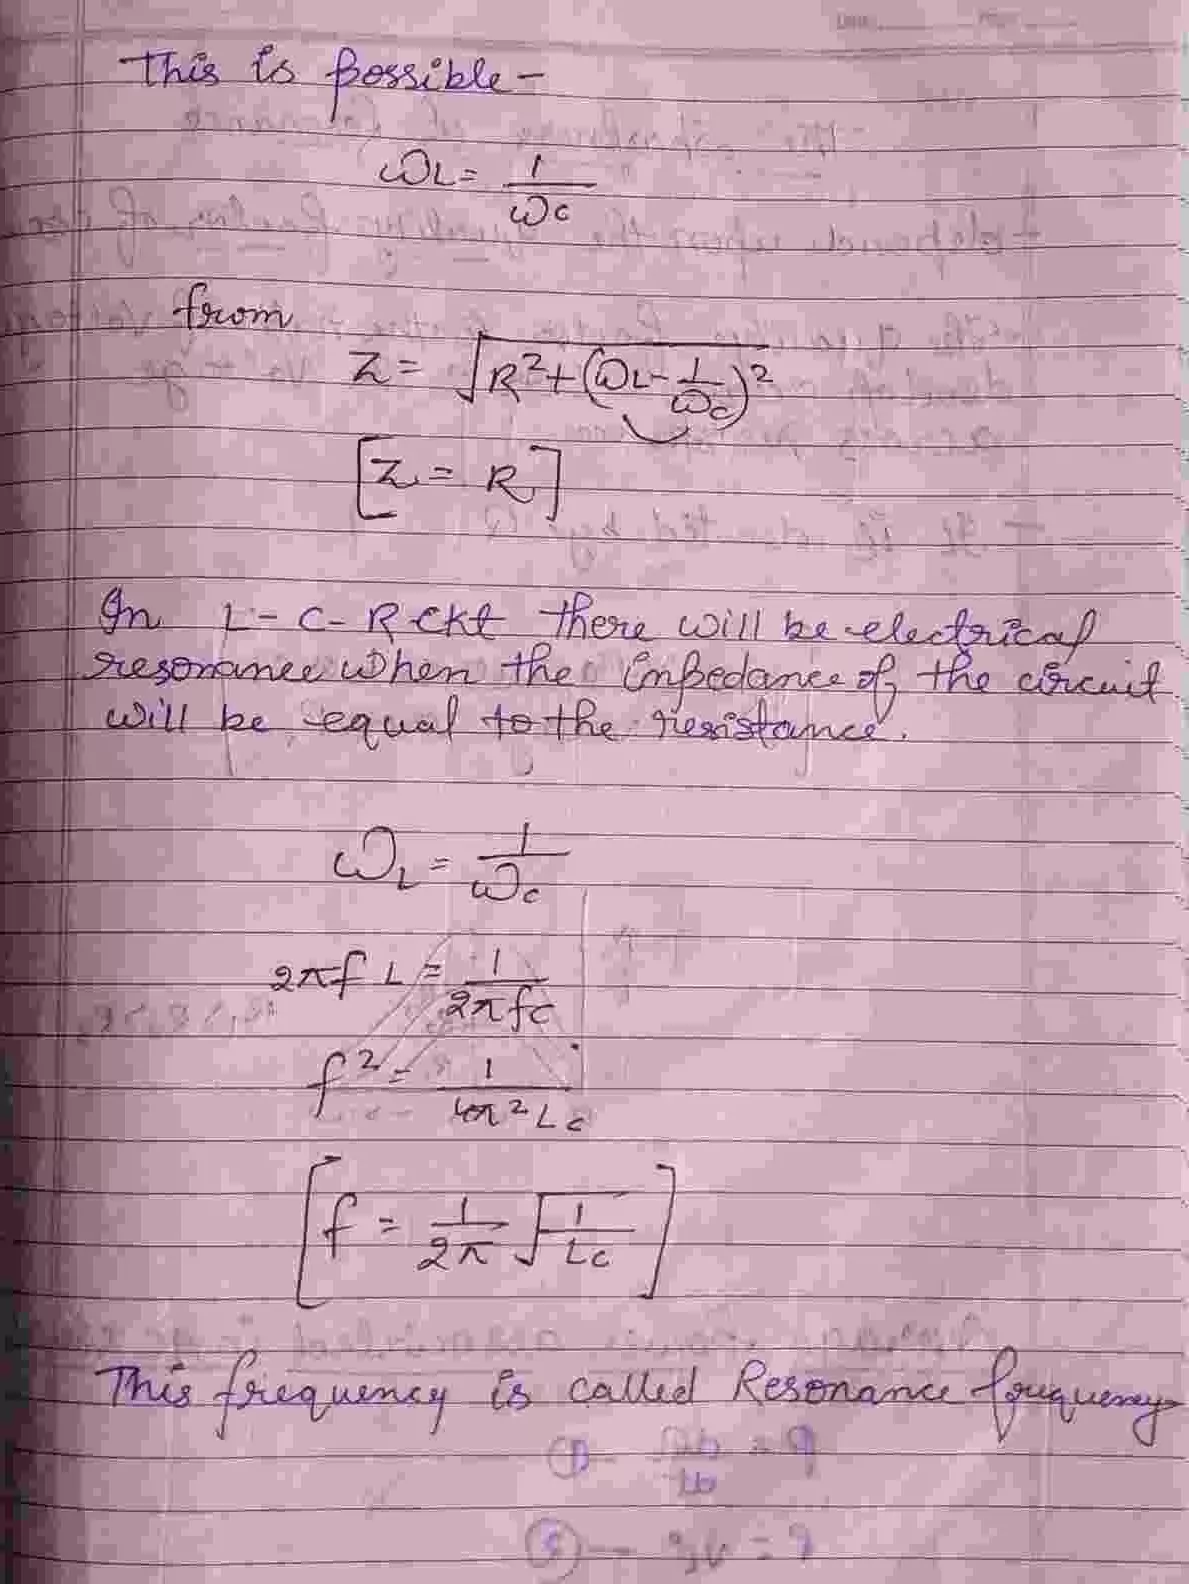 This is possible -
ωL = 1/ωC
from
Z = √(R² + (ωL - 1/ωC)²)
[Z = R]
In L-C-R ckt there will be electrical
resonance when the impedance of the circuit
will be equal to the resistance.
ωL = 1/ωC
2πf L = 1/2πfC
f² = 1/4π²LC
[f = 1/2π √(1/LC)]
This frequency is called Resonance frequency